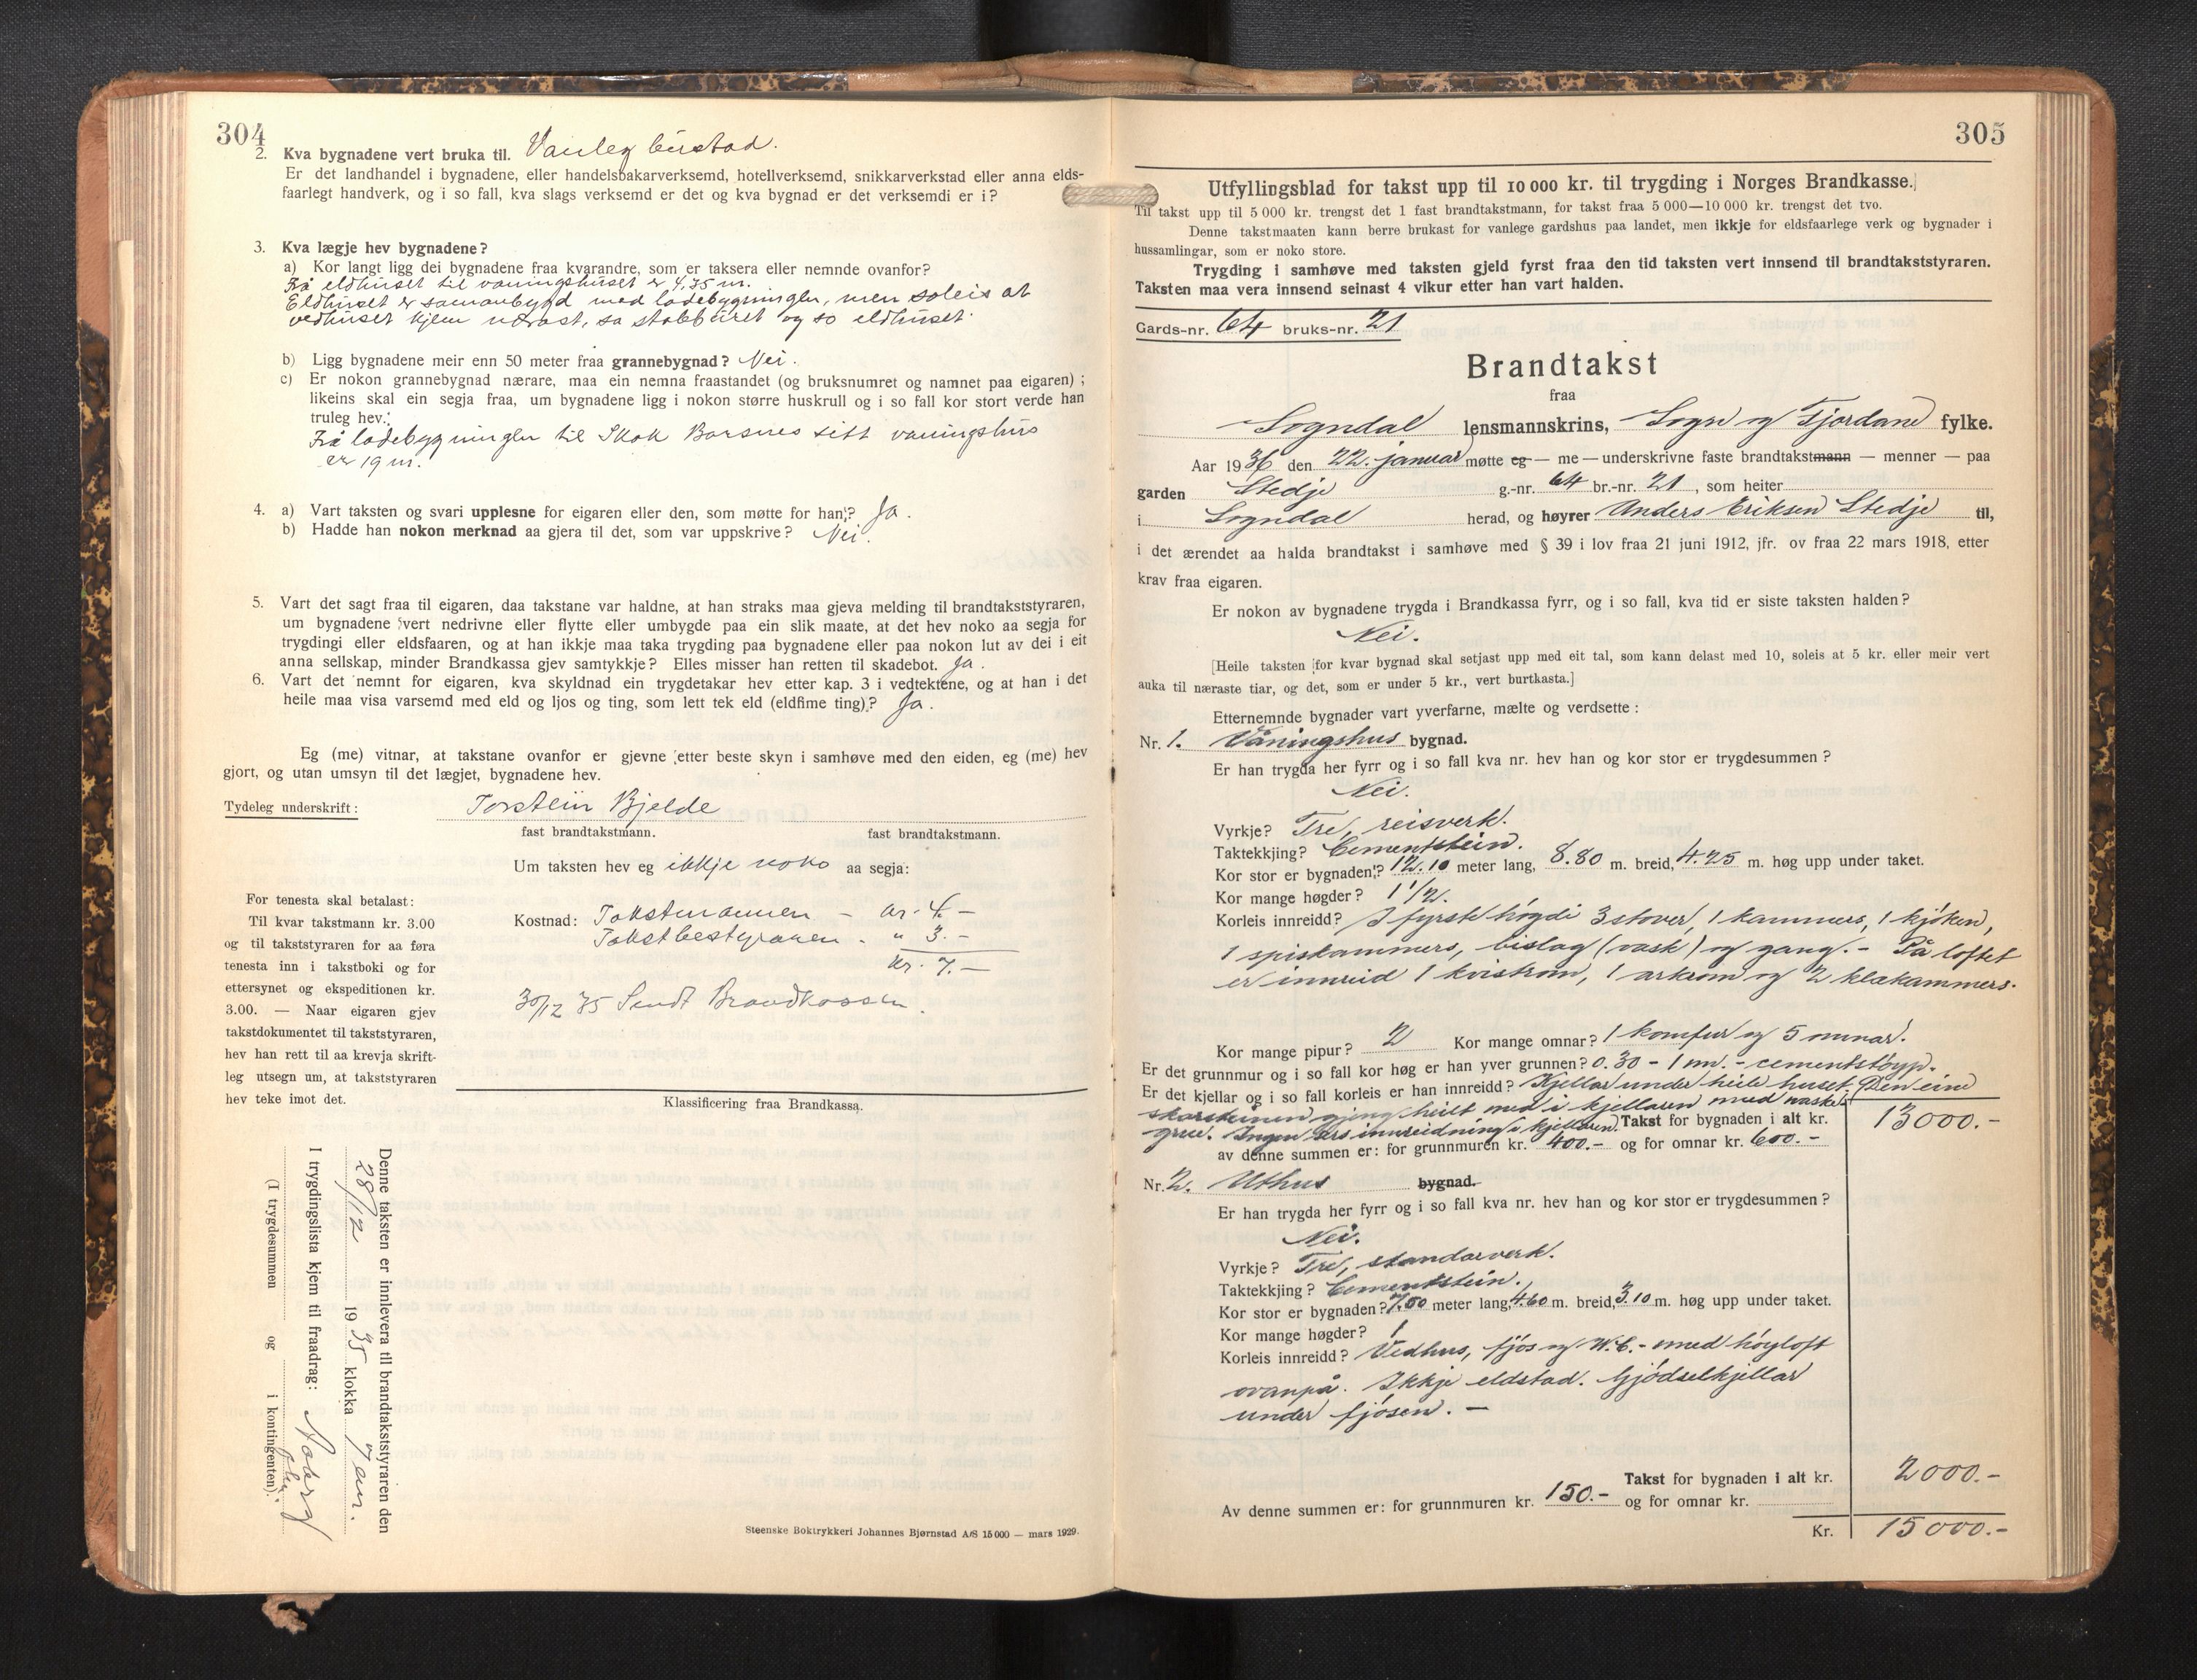 304
2. Kva bygnadene vert bruka til. Vanleg bustad.
Er det landhandel i bygnadene, eller handelsbakarverksemd, hotellverksemd, snikkarverkstad eller anna elds-
faarlegt handverk, og i so fall, kva slags verksemd er det og kva bygnad er det verksemdi er i?
3. Kva lægje hev bygnadene?
a) Kor langt ligg dei bygnadene fraa kvarandre, som er taksera eller nemnde ovanfor?
Frå eldhuset til våningshuset er 4,35 m.
Eldhuset er samanbygd med ladebygningen, men soleis at
vedhuset kjem nærast, so stabburet og so eldhuset.
b) Ligg bygnadene meir enn 50 meter fraa grannebygnad? Nei.
c) Er nokon grannebygnad nærare, maa ein nemna fraastandet (og bruksnumret og namnet paa eigaren);
likeins skal ein segja fraa, um bygnadene ligg i nokon større huskrull og i so fall kor stort verde han
truleg hev.:
Frå ladebygningen til Skak Barsnes sitt våningshus
er 19 m.
4. a) Vart taksten og svari upplesne for eigaren eller den, som møtte for han? Ja.
b) Hadde han nokon merknad aa gjera til det, som var uppskrive? Nei.
5. Vart det sagt fraa til eigaren, daa takstane var haldne, at han straks maa gjeva melding til brandtakststyraren,
um bygnadene vert nedrivne eller flytte eller umbygde paa ein slik maate, at det hev noko aa segja for
trygdingi eller eldsfaaren, og at han ikkje maa taka trygding paa bygnadene eller paa nokon lut av dei i eit
anna sellskap, minder Brandkassa gjev samtykkje? Elles misser han retten til skadebot. Ja.
6. Vart det nemnt for eigaren, kva skyldnad ein trygdetakar hev etter kap. 3 i vedtektene, og at han i det
heile maa visa varsemd med eld og ljos og ting, som lett tek eld (eldfime ting)? Ja.
Eg (me) vitnar, at takstane ovanfor er gjevne etter beste skyn i samhøve med den eiden, eg (me) hev
gjort, og utan umsyn til det lægjet, bygnadene hev.
Tydeleg underskrift: Torstein Bjelde
fast brandtakstmann. fast brandtakstmann.
Um taksten hev eg ikkje noko aa segja:
For tenesta skal betalast:
Til kvar takstmann kr. 3.00
og til takststyraren for aa føra
tenesta inn i takstboki og for
ettersynet og ekspeditionen kr.
3.00. — Naar eigaren gjev
takstdokumentet til takststyraren,
hev han rett til aa krevja skrift-
leg utsegn um, at takststyraren
hev teke imot det.
Kostnad: Takstmannen - kr. 4.-
Takstbestyraren - " 3.-
kr. 7.-
30/12 35 Sendt Brandkassen.
Klassificering fraa Brandkassa.
Denne taksten er innlevera til brandtakststyraren den
28/12 1935 klokka 7 em.
I trygdingslista kjem til fraadrag:
(I trygdesummen og i kontingenten).
Steenske Boktrykkeri Johannes Bjørnstad A/S 15 000 — mars 1929.
305
Utfyllingsblad for takst upp til 10 000 kr. til trygding i Norges Brandkasse.
Til takst upp til 5 000 kr. trengst det 1 fast brandtakstmann, for takst fraa 5 000—10 000 kr. trengst det tvo.
Denne takstmaaten kann berre brukast for vanlege gardshus paa landet, men ikkje for eldsfaarlege verk og bygnader i
hussamlingar, som er noko store.
Trygding i samhøve med taksten gjeld fyrst fraa den tid taksten vert innsend til brandtakststyraren.
Taksten maa vera innsend seinast 4 vikur etter han vart halden.
Gards-nr. 64 bruks-nr. 21
Brandtakst
fraa
Sogndal lensmannskrins, Sogn og Fjordane fylke.
Aar 1936 den 22. januar møtte eg — me — underskrivne faste brandtakstmann — menner — paa
garden Stedje g.-nr. 64 br.-nr. 21, som heiter
i Sogndal herad, og høyrer Anders Eriksen Stedje til,
i det ærendet aa halda brandtakst i samhøve med § 39 i lov fraa 21 juni 1912, jfr. ov fraa 22 mars 1918, etter
krav fraa eigaren.
Er nokon av bygnadene trygda i Brandkassa fyrr, og i so fall, kva tid er siste taksten halden?
Nei.
[Heile taksten for kvar bygnad skal setjast upp med eit tal, som kann delast med 10, soleis at 5 kr. eller meir vert
auka til næraste tiar, og det, som er under 5 kr., vert burtkasta.]
Etternemnde bygnader vart yverfarne, mælte og verdsette:
Nr. 1. Våningshus bygnad.
Er han trygda her fyrr og i so fall kva nr. hev han og kor stor er trygdesummen?
Nei.
Vyrkje? Tre, reisverk.
Taktekkjing? Cementstein.
Kor stor er bygnaden? 12.10 meter lang, 8.80 m. breid, 4.25 m. høg upp under taket.
Kor mange høgder? 1 1/2.
Korleis innreidd? I fyrste høgdi 3 stover, 1 kammers, 1 kjøken,
1 spiskammers, bislag (vask) og gang. - På loftet
er innreid 1 kvistrom, 1 arkrom og 2 klækammers.
Kor mange pipur? 2 Kor mange omnar? 1 komfur og 5 omnar.
Er det grunnmur og i so fall kor høg er han yver grunnen? 0.30 - 1 m. - cementstøyp.
Er det kjellar og i so fall korleis er han innreidd? Kjellar under heile huset. Den eine
skorsteinen gjeng heilt ned i kjellaren med vaske-
grue. Ingen års innreidning i kjellaren. Takst for bygnaden i alt kr. 13000.-
av denne summen er: for grunnmuren kr. 400.- og for omnar kr. 600.-
Nr. 2. Uthus bygnad.
Er han trygda her fyrr og i so fall kva nr. hev han og kor stor er trygdesummen?
Nei.
Vyrkje? Tre, standarverk.
Taktekkjing? Cementstein.
Kor stor er bygnaden? 7.50 meter lang, 4.60 m. breid, 3.10 m. høg upp under taket.
Kor mange høgder? 1
Korleis innreidd? Vedhus, fjøs og W.C. - med høyloft
ovanpå. Ikkje eldstad. Gjødselkjellar
under fjøsen. -
Takst for bygnaden i alt kr. 2000.-
Av denne summen er: for grunnmuren kr. 150.- og for omnar kr.
Kr. 15000.-